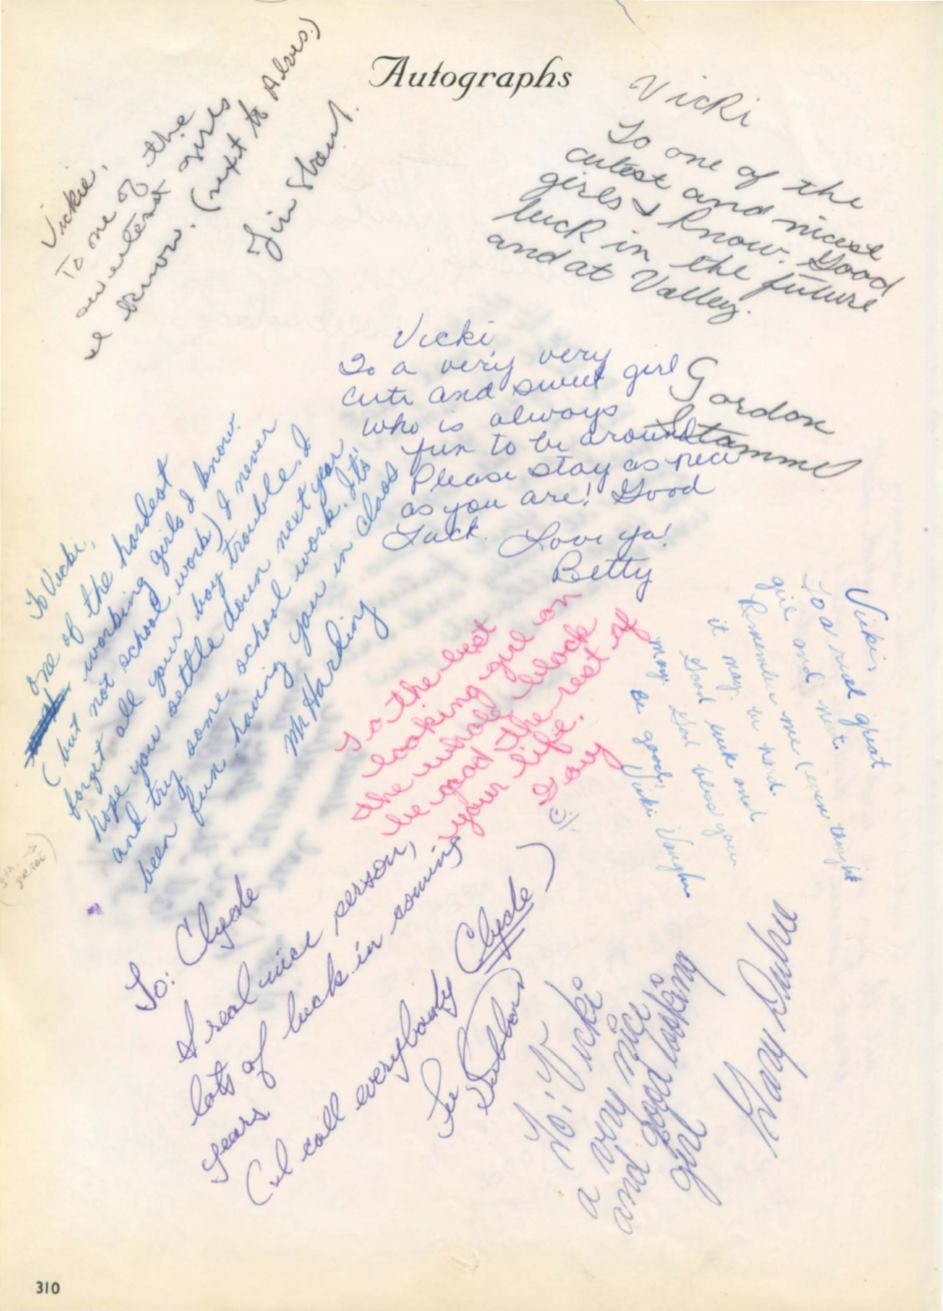 Autographs
Vickie,
To one of the
sweetest girls
I know. (next to Alvis.)
Jim
Vicki
To one of the
cutest and nicest
girls I know. Good
luck in the future
and at Valley.
Gordon
Stammel
Vicki,
To a very very
cute and sweet girl
who is always
fun to be around
Please stay as nice
as you are! Good
Luck. Love ya!
Betty
To Vicki,
one of the hardest
working girls I know.
(but not school work) I never
forget all your boy trouble. I
hope you settle down next year
and try some school work. It's
been fun having you in class
Mr Harding
To the best
looking girl on
the whole block
be good the rest of
your life.
Vicki,
To a real great
girl and
Remember me (even thought
it may be hard.
Good luck and
may God bless you
be good, Vicki Vaughn
To: Clyde
A real nice person,
lots of luck in coming
years
(I call everybody Clyde)
To: Vicki
a very nice
and good looking
girl
Gary
310